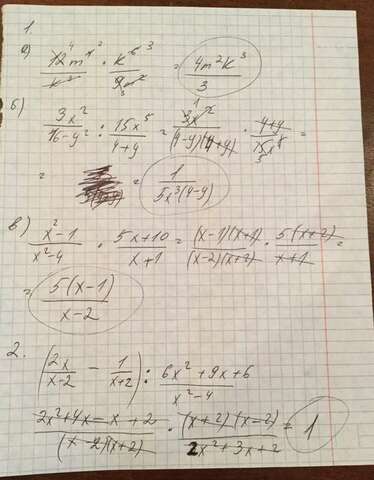 1.
а) 12m⁴/k³ · k⁶/9m² = 4m²k³/3
б) 3x²/16-y² : 15x⁵/4+y = 3x²/(4-y)(4+y) · 4+y/15x⁵ =
= = 1/5x³(4-y)
в) x²-1/x²-4 · 5x+10/x+1 = (x-1)(x+1)/(x-2)(x+2) · 5(x+2)/x+1 =
= 5(x-1)/x-2
2. (2x/x-2 - 1/x+2) : 6x²+9x+6/x²-4
2x²+4x-x+2/(x-2)(x+2) · (x+2)(x-2)/2x²+3x+2 = 1